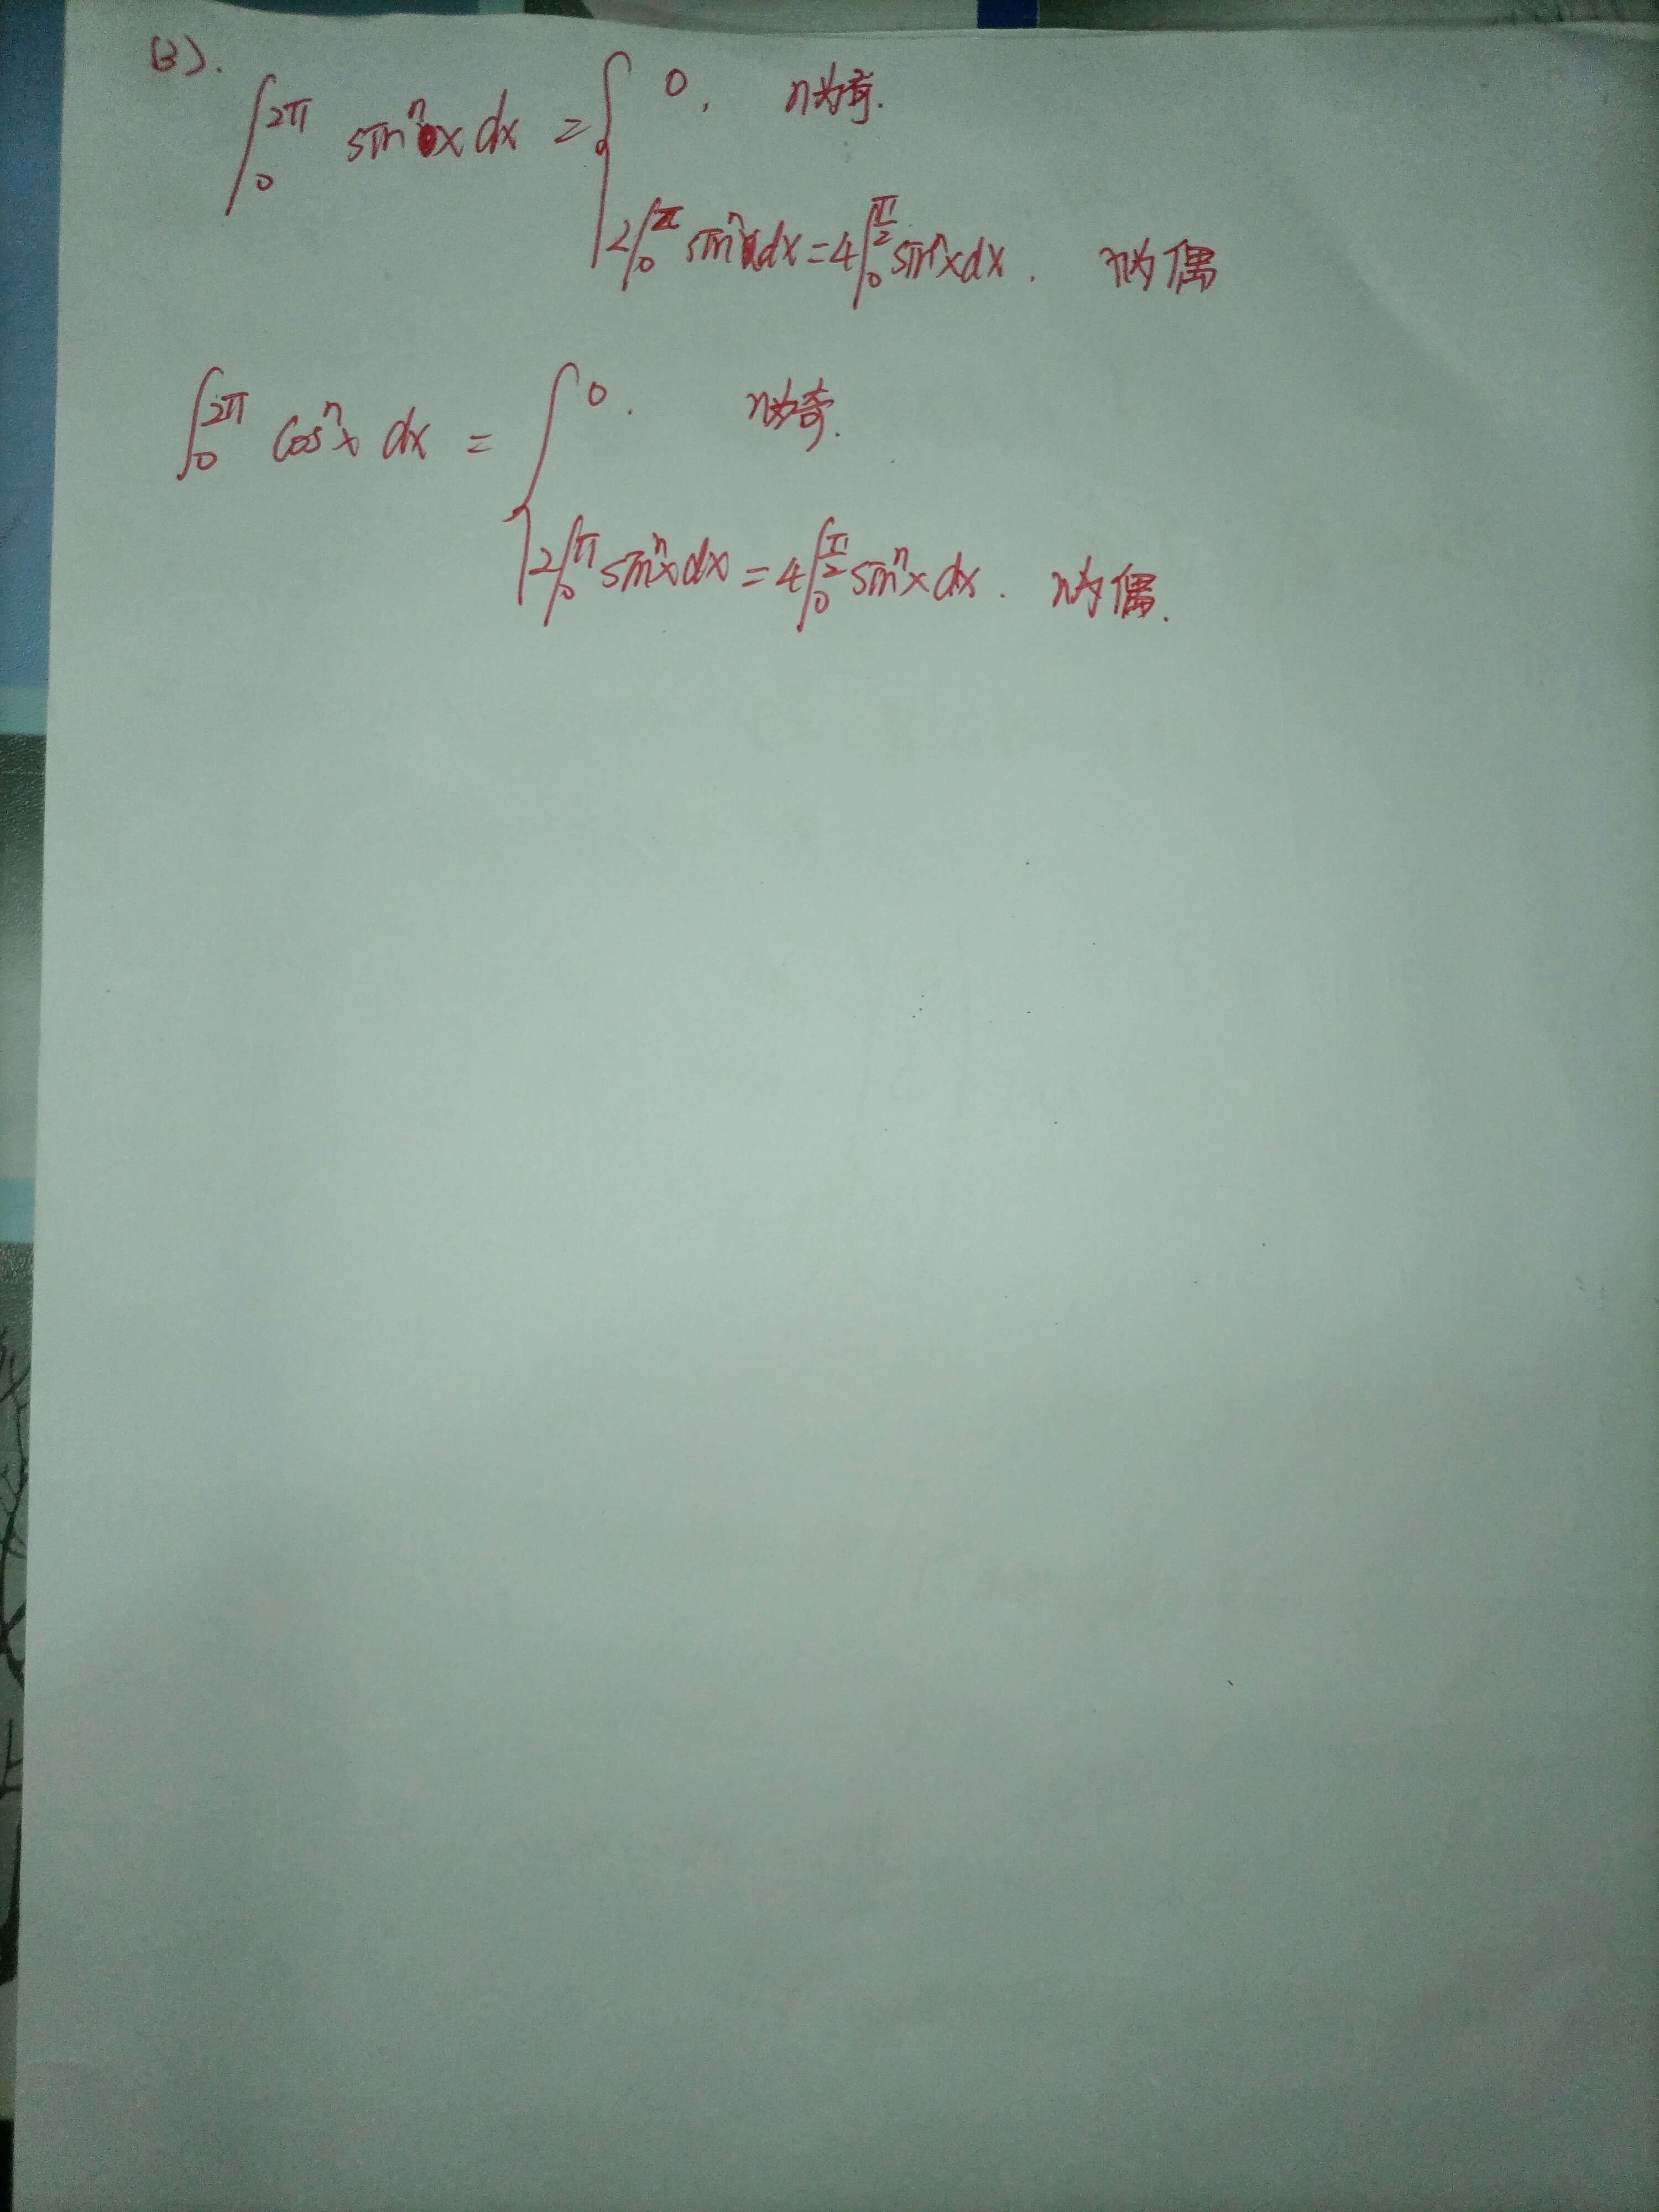 (3).
∫₀^{2π} sinⁿx dx = { 0, n为奇.
2∫₀^{π} sinⁿx dx = 4∫₀^{π/2} sinⁿx dx. n为偶
∫₀^{2π} cosⁿx dx = { 0. n为奇.
2∫₀^{π} sinⁿx dx = 4∫₀^{π/2} sinⁿx dx. n为偶.